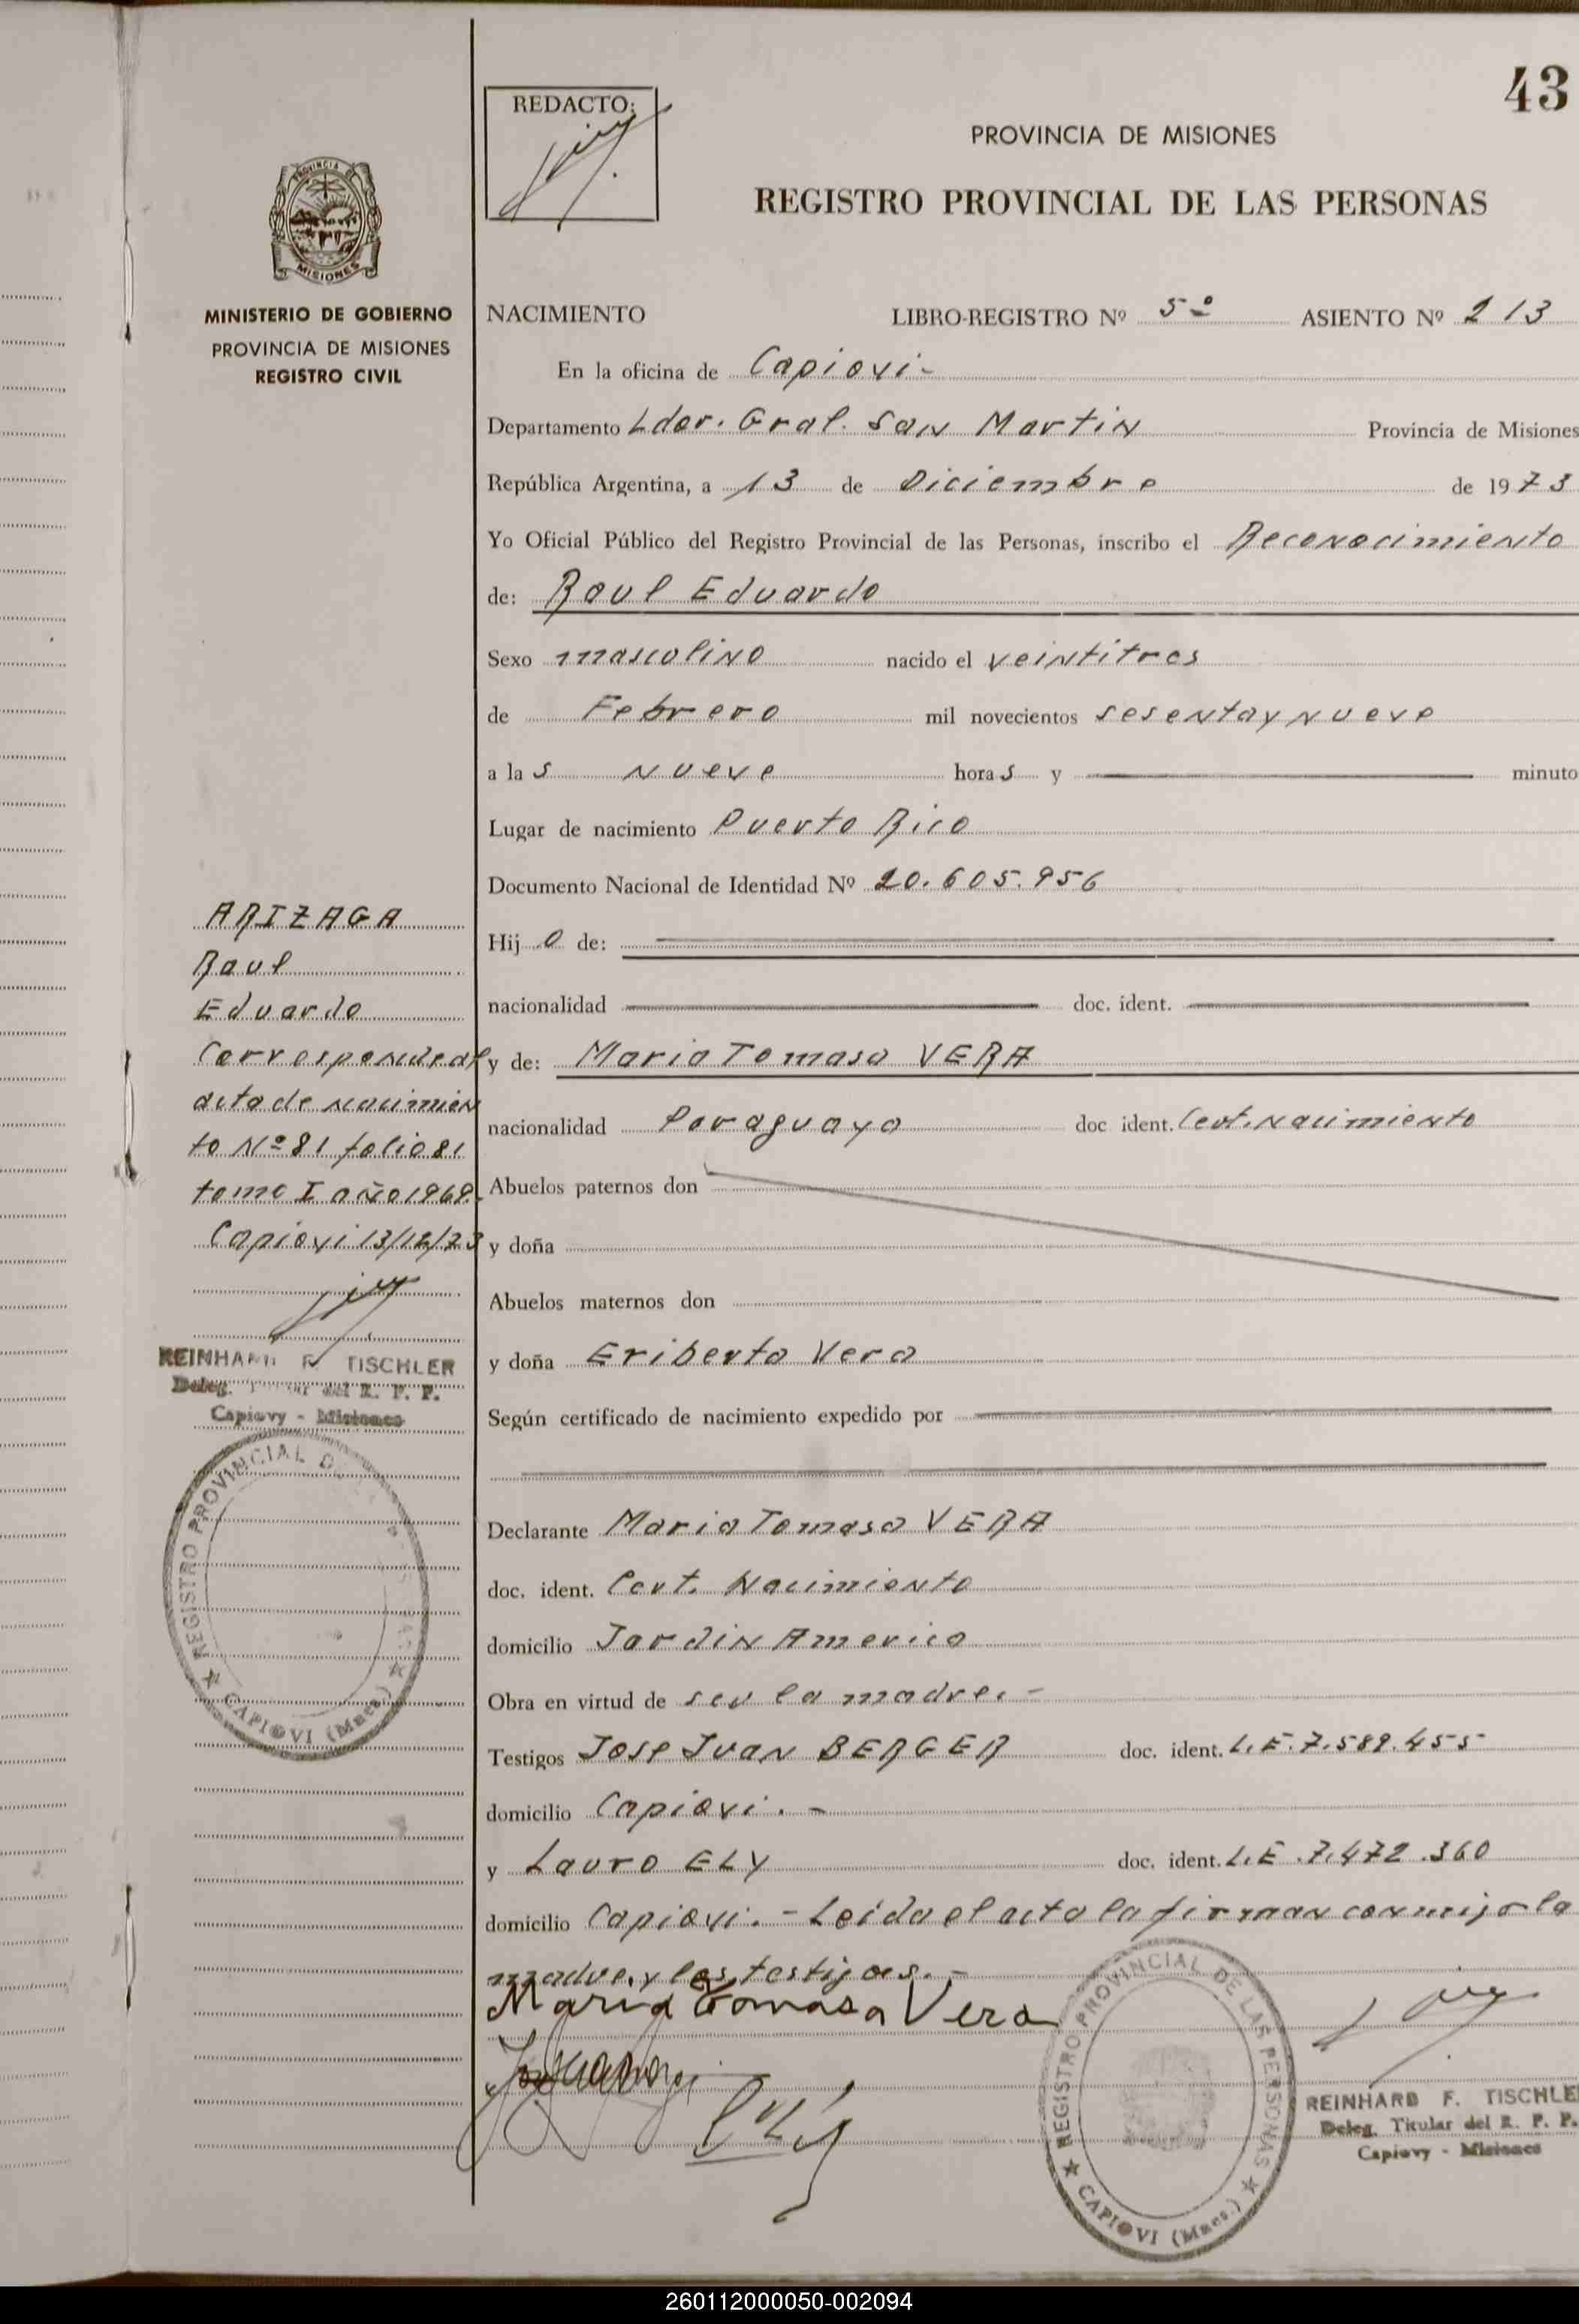 43
REDACTO:
PROVINCIA DE MISIONES
REGISTRO PROVINCIAL DE LAS PERSONAS
PROVINCIA DE
MISIONES
MINISTERIO DE GOBIERNO
PROVINCIA DE MISIONES
REGISTRO CIVIL
NACIMIENTO LIBRO-REGISTRO Nº 5º ASIENTO Nº 213
En la oficina de Capiovi-
Departamento Ldor. Gral. San Martin Provincia de Misiones
República Argentina, a 13 de Diciembre de 1973
Yo Oficial Público del Registro Provincial de las Personas, inscribo el Reconocimiento
de: Raul Eduardo
Sexo masculino nacido el veintitres
de Febrero mil novecientos sesentaynueve
a las nueve horas y minuto
Lugar de nacimiento Puerto Rico
Documento Nacional de Identidad Nº 20.605.956
Hijo de:
nacionalidad doc. ident.
y de: Maria Tomasa VERA
nacionalidad Paraguaya doc ident. Cert. Nacimiento
Abuelos paternos don
y doña
Abuelos maternos don
y doña Eriberta Vera
Según certificado de nacimiento expedido por
Declarante Maria Tomasa VERA
doc. ident. Cert. Nacimiento
domicilio Jardin America
Obra en virtud de ser la madre.-
Testigos Jose Juan BERGER doc. ident. L.E. 7.589.455
domicilio Capiovi.-
y Lauro ELY doc. ident. L.E. 7.472.360
domicilio Capiovi.- Leida el acta la firman conmigo la
madre y los testigos.-
Maria Tomasa Vera
REINHARD F. TISCHLE
Deleg. Titular del R. P. P.
Capiovy - Misiones
REGISTRO PROVINCIAL DE LAS PERSONAS
CAPIOVI (Mnes.)
ARIZAGA
Raul
Eduardo
Corresponde al
acta de nacimien
to Nº 81 folio 81
tomo I año 1969.
Capiovi 13/12/73
REINHARD F. TISCHLER
Deleg. Titular del R. P. P.
Capiovy - Misiones
REGISTRO PROVINCIAL DE
CAPIOVI (Mnes.)
260112000050-002094